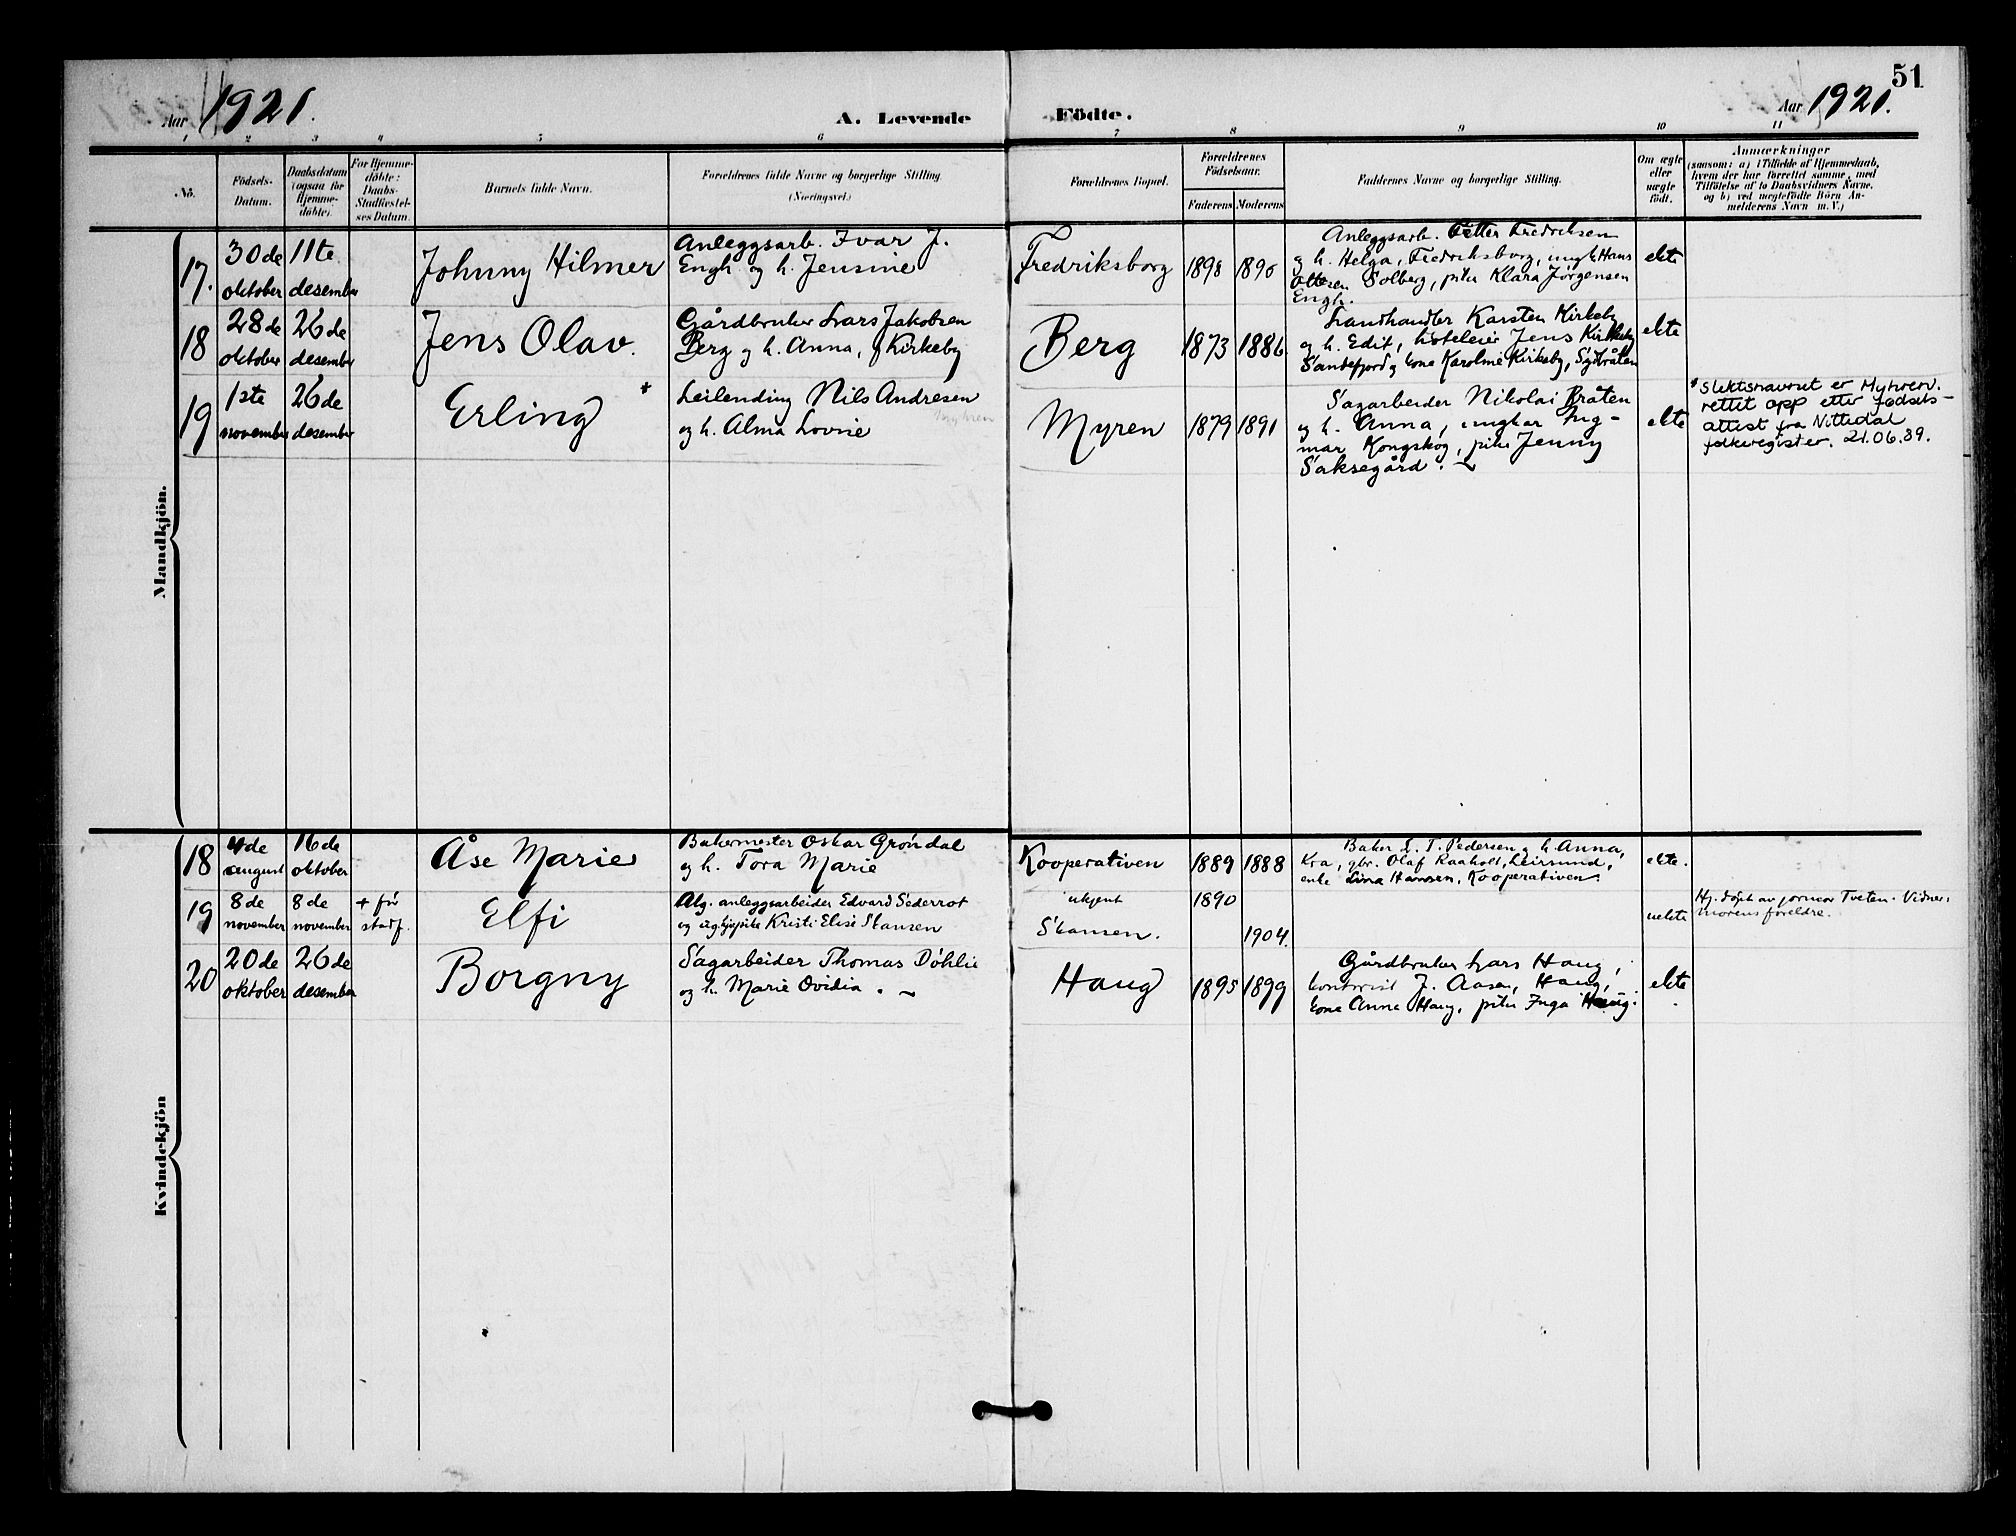 51
Aar 1921.
A. Levende Födte.
Aar 1921.
1 2 3 4 5 6 7 8 9 10 11
No.
Födsels-
Datum.
Daabsdatum
(ogsaa for
Hjemme-
döbte).
For Hjemme-
döbte:
Daabs-
Stadfæstel-
ses Datum.
Barnets fulde Navn.
Forældrenes fulde Navne og borgerlige Stilling
(Næringsvei.)
Forældrenes Bopæl.
Forældrenes
Födselsaar.
Faderens Moderens
Faddernes Navne og borgerlige Stilling.
Om ægte
eller
uægte
födt.
Anmærkninger
(saasom: a) i Tilfælde af Hjemmedaab,
hvem der har forrettet samme, med
Tilföielse af to Daabsvidners Navne,
og b) ved uægtefödte Börn An-
melderens Navn m. V.)
Mandkjön.
17.
30de
oktober
11te
desember
Johnny Hilmer
Anleggsarb. Ivar J.
Engh og h. Jensine
Fredriksborg
1898
1890
Anleggsarb. Petter Fredriksen
og h. Helga, Fredriksborg, ungk Hans
Ottesen Solberg, pike Klara Jørgensen
Engh.
ekte
18
28de
oktober
26de
desember
Jens Olav.
Gårdbruker Lars Jakobsen
Berg og h. Anna, f Kirkeby
Berg
1873
1886.
Landhandler Karsten Kirkeby
og h. Edit, hoteleier Jens Kirkeby
Sandefjord og kone Karoline Kirkeby,
ekte
19
1ste
november
26de
desember
Erling +
Leilending Nils Andresen
og h. Alma Lovise
Myhren
Myren
1879
1891
Sagarbeider Nikolai Bråten
og h. Anna, ungkar Ing-
mar Kongskog, pike Jenny
Saksegård.
ekte
* Slektsnavnet er Myhren.
rettet opp etter fødsels-
attest fra Nittedal
folkeregister. 21.06.89.
Kvindekjön
18
4de
august
16de
oktober
Åse Marie
Bakermester Oskar Grøndal
og h. Tora Marie
Kooperativen
1889
1888
Baker L. T. Pedersen og h. Anna,
Kra, gbr. Olaf Raaholt, Leirsund,
enke Lina Hansen, Kooperativen.
ekte.
19
8de
november
8de
november
+ før
stadf.
Elfi
Alg. anleggsarbeider Edvard Sederrot
og ugh. pike Kristi Elise Stansen
ukjent
Stansen.
1890
1904.
uekte
Hj. døpt av jormor Tveten. Vidner:
morens foreldre.
20
20de
oktober
26de
desember
Borgny
Sagarbeider Thomas Døhlie
og h. Marie Ovidia.
Haug
1895
1899
Gårdbruker Lars Haug,
J. Aasen, Haug,
kone Anna Haug, pike Inga Haug.
ekte